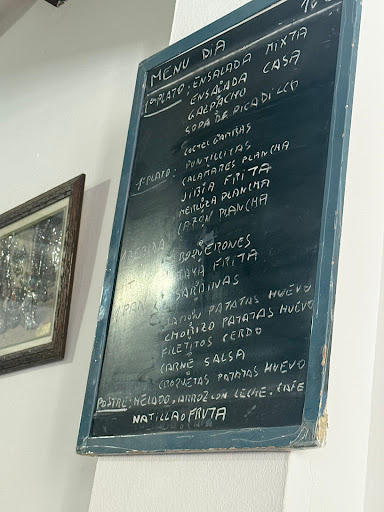 MENU DIA
1º PLATO: ENSALADA MIXTA
ENSALADA CASA
GAZPACHO
SOPA DE PICADILLO
COCTEL GAMBAS
PUNTILLITAS
PLATO: CALAMARES PLANCHA
JIBIA FRITA
MERLUZA PLANCHA
PLANCHA
BEBIDA BOQUERONES
FRITA
PAN SARDINAS
JAMON PATATAS HUEVO
CHORIZO PATATAS HUEVO
FILETITOS CERDO
CARNE SALSA
CROQUETAS PATATAS HUEVO
POSTRE: HELADO, ARROZ CON LECHE, CAFE
NATILLA O FRUTA